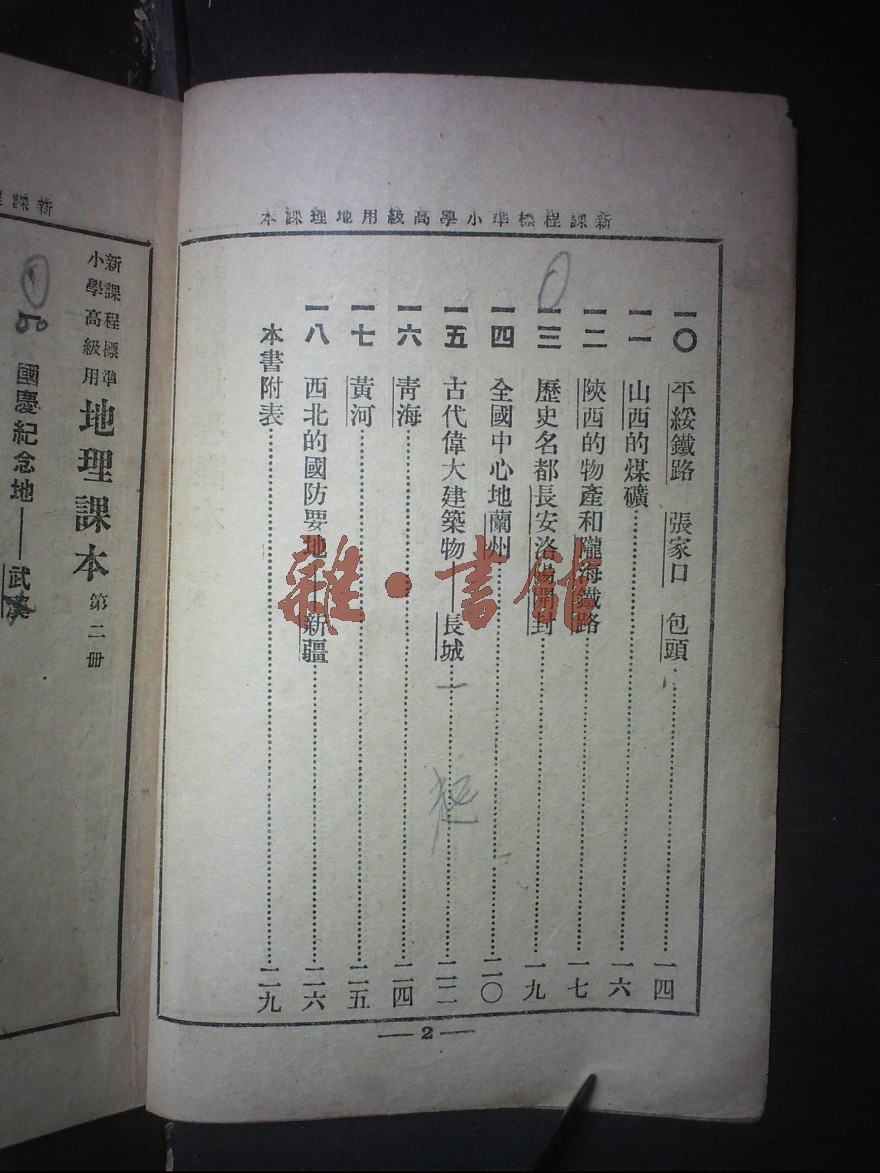 新課程標準小學高級用地理課本
一〇 平綏鐵路 張家口 包頭……一四
一一 山西的煤礦……一六
一二 陝西的物產和隴海鐵路……一七
一三 歷史名都長安洛陽開封……一九
一四 全國中心地蘭州……二〇
一五 古代偉大建築物——長城……二二
一六 靑海……二四
一七 黃河……二五
一八 西北的國防要地——新疆……二六
本書附表……二九
—2—
雜·書館
新課程標準
小學高級用
地理課本 第二冊
國慶紀念地——武漢
新課程